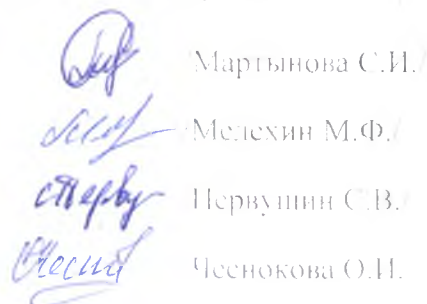 Мартынова С.И./
Мелехин М.Ф./
Первушин С.В./
Чеснокова О.И.